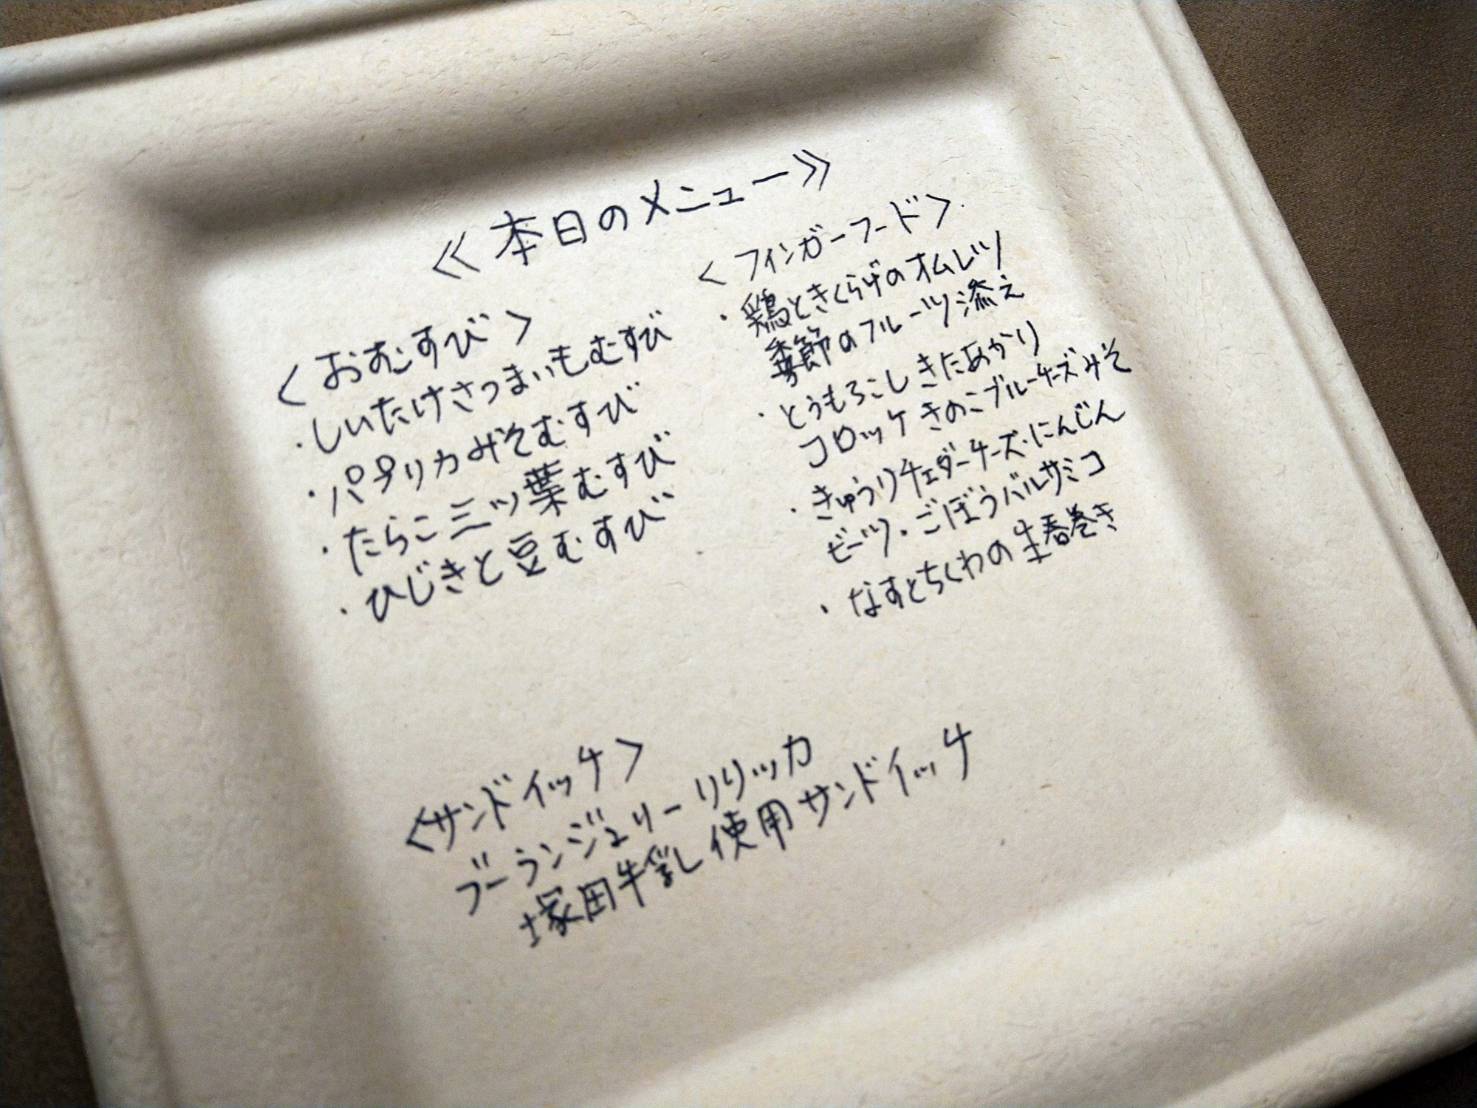 ≪本日のメニュー≫
<おむすび>
・しいたけさつまいもむすび
・パプリカみそむすび
・たらこ三ツ葉むすび
・ひじきと豆むすび
<フィンガーフード>
・鶏ときくらげのオムレツ
季節のフルーツ添え
・とうもろこしきたあかり
コロッケきのこブルーチーズみそ
・きゅうりチェダーチーズ・にんじん
ビーツ・ごぼうバルサミコ
・なすとちくわの生春巻き
<サンドイッチ>
ブーランジェリーリリッカ
塚田牛乳使用サンドイッチ